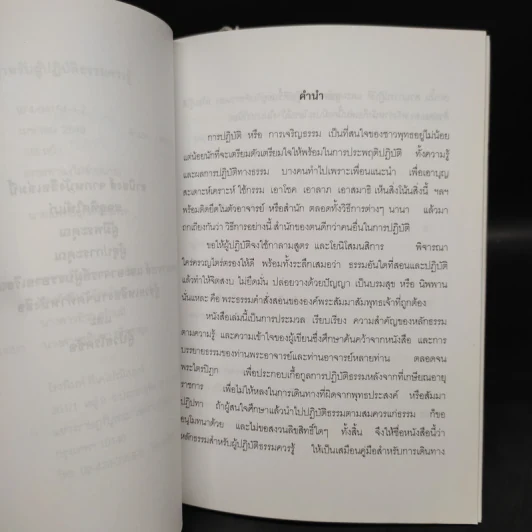 คำนำ
การปฏิบัติ หรือ การเจริญธรรม เป็นที่สนใจของชาวพุทธอยู่ไม่น้อย
แต่น้อยนักที่จะเตรียมตัวเตรียมใจให้พร้อมในการประพฤติปฏิบัติ ทั้งความรู้
และผลการปฏิบัติทางธรรม บางคนทำไปเพราะเพื่อนแนะนำ เพื่อเอาบุญ
สะเดาะห์เคราะห์ ใช้กรรม เอาโชค เอาลาภ เอาสมาธิ เห็นสิ่งโน้นสิ่งนี้ ฯลฯ
พร้อมติดยึดในตัวอาจารย์ หรือสำนัก ตลอดทั้งวิธีการต่างๆ นานา แล้วมา
ถกเถียงกันว่า วิธีการอย่างนี้ สำนักของตนดีกว่าคนอื่นในการปฏิบัติ
ขอให้ผู้ปฏิบัติจงใช้กาลามสูตร และโยนิโสมนสิการ พิจารณา
ใคร่ครวญไตร่ตรองให้ดี พร้อมทั้งระลึกเสมอว่า ธรรมอันใดที่สอนและปฏิบัติ
แล้วทำให้จิตสงบ ไม่ยึดมั่น ปลอยวางด้วยปัญญา เป็นบรมสุข หรือ นิพพาน
นั่นแหละ คือ พระธรรมคำสั่งสอนขององค์พระสัมมาสัมพุทธเจ้าที่ถูกต้อง
หนังสือเล่มนี้เป็นการประมวล เรียบเรียง ความสำคัญของหลักธรรม
ตามความรู้ และความเข้าใจของผู้เขียนซึ่งศึกษาค้นคว้าจากหนังสือ และการ
บรรยายธรรมของท่านพระอาจารย์และท่านอาจารย์หลายท่าน ตลอดจน
พระไตรปิฎก เพื่อประกอบเกื้อกูลการปฏิบัติธรรมหลังจากที่เกษียณอายุ
ราชการ เพื่อไม่ให้หลงในการเดินทางที่ผิดจากพุทธประสงค์ หรือสัมมา
ปฏิปทา ถ้าผู้สนใจศึกษาแล้วนำไปปฏิบัติธรรมตามสมควรแก่ธรรม ก็ขอ
อนุโมทนาด้วย และไม่ขอสงวนลิขสิทธิ์ใดๆ ทั้งสิ้น จึงให้ชื่อหนังสือนี้ว่า
หลักธรรมสำหรับผู้ปฏิบัติธรรมควรรู้ ให้เป็นเสมือนคู่มือสำหรับการเดินทาง